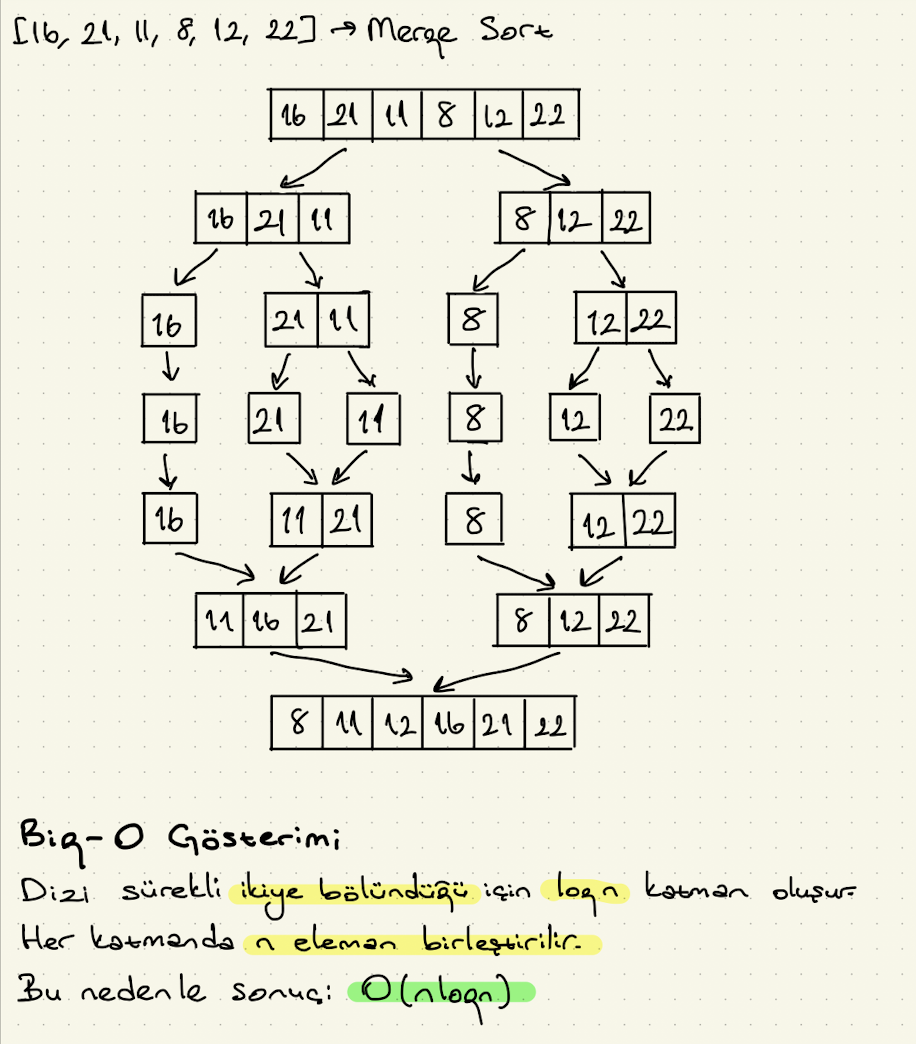 [16, 21, 11, 8, 12, 22] → Merge Sort
16 21 11 8 12 22
16 21 11 8 12 22
16 21 11 8 12 22
16 21 11 8 12 22
16 11 21 8 12 22
11 16 21 8 12 22
8 11 12 16 21 22
Big-O Gösterimi
Dizi sürekli ikiye bölündüğü için logn katman oluşur.
Her katmanda n eleman birleştirilir.
Bu nedenle sonuç: O(nlogn)